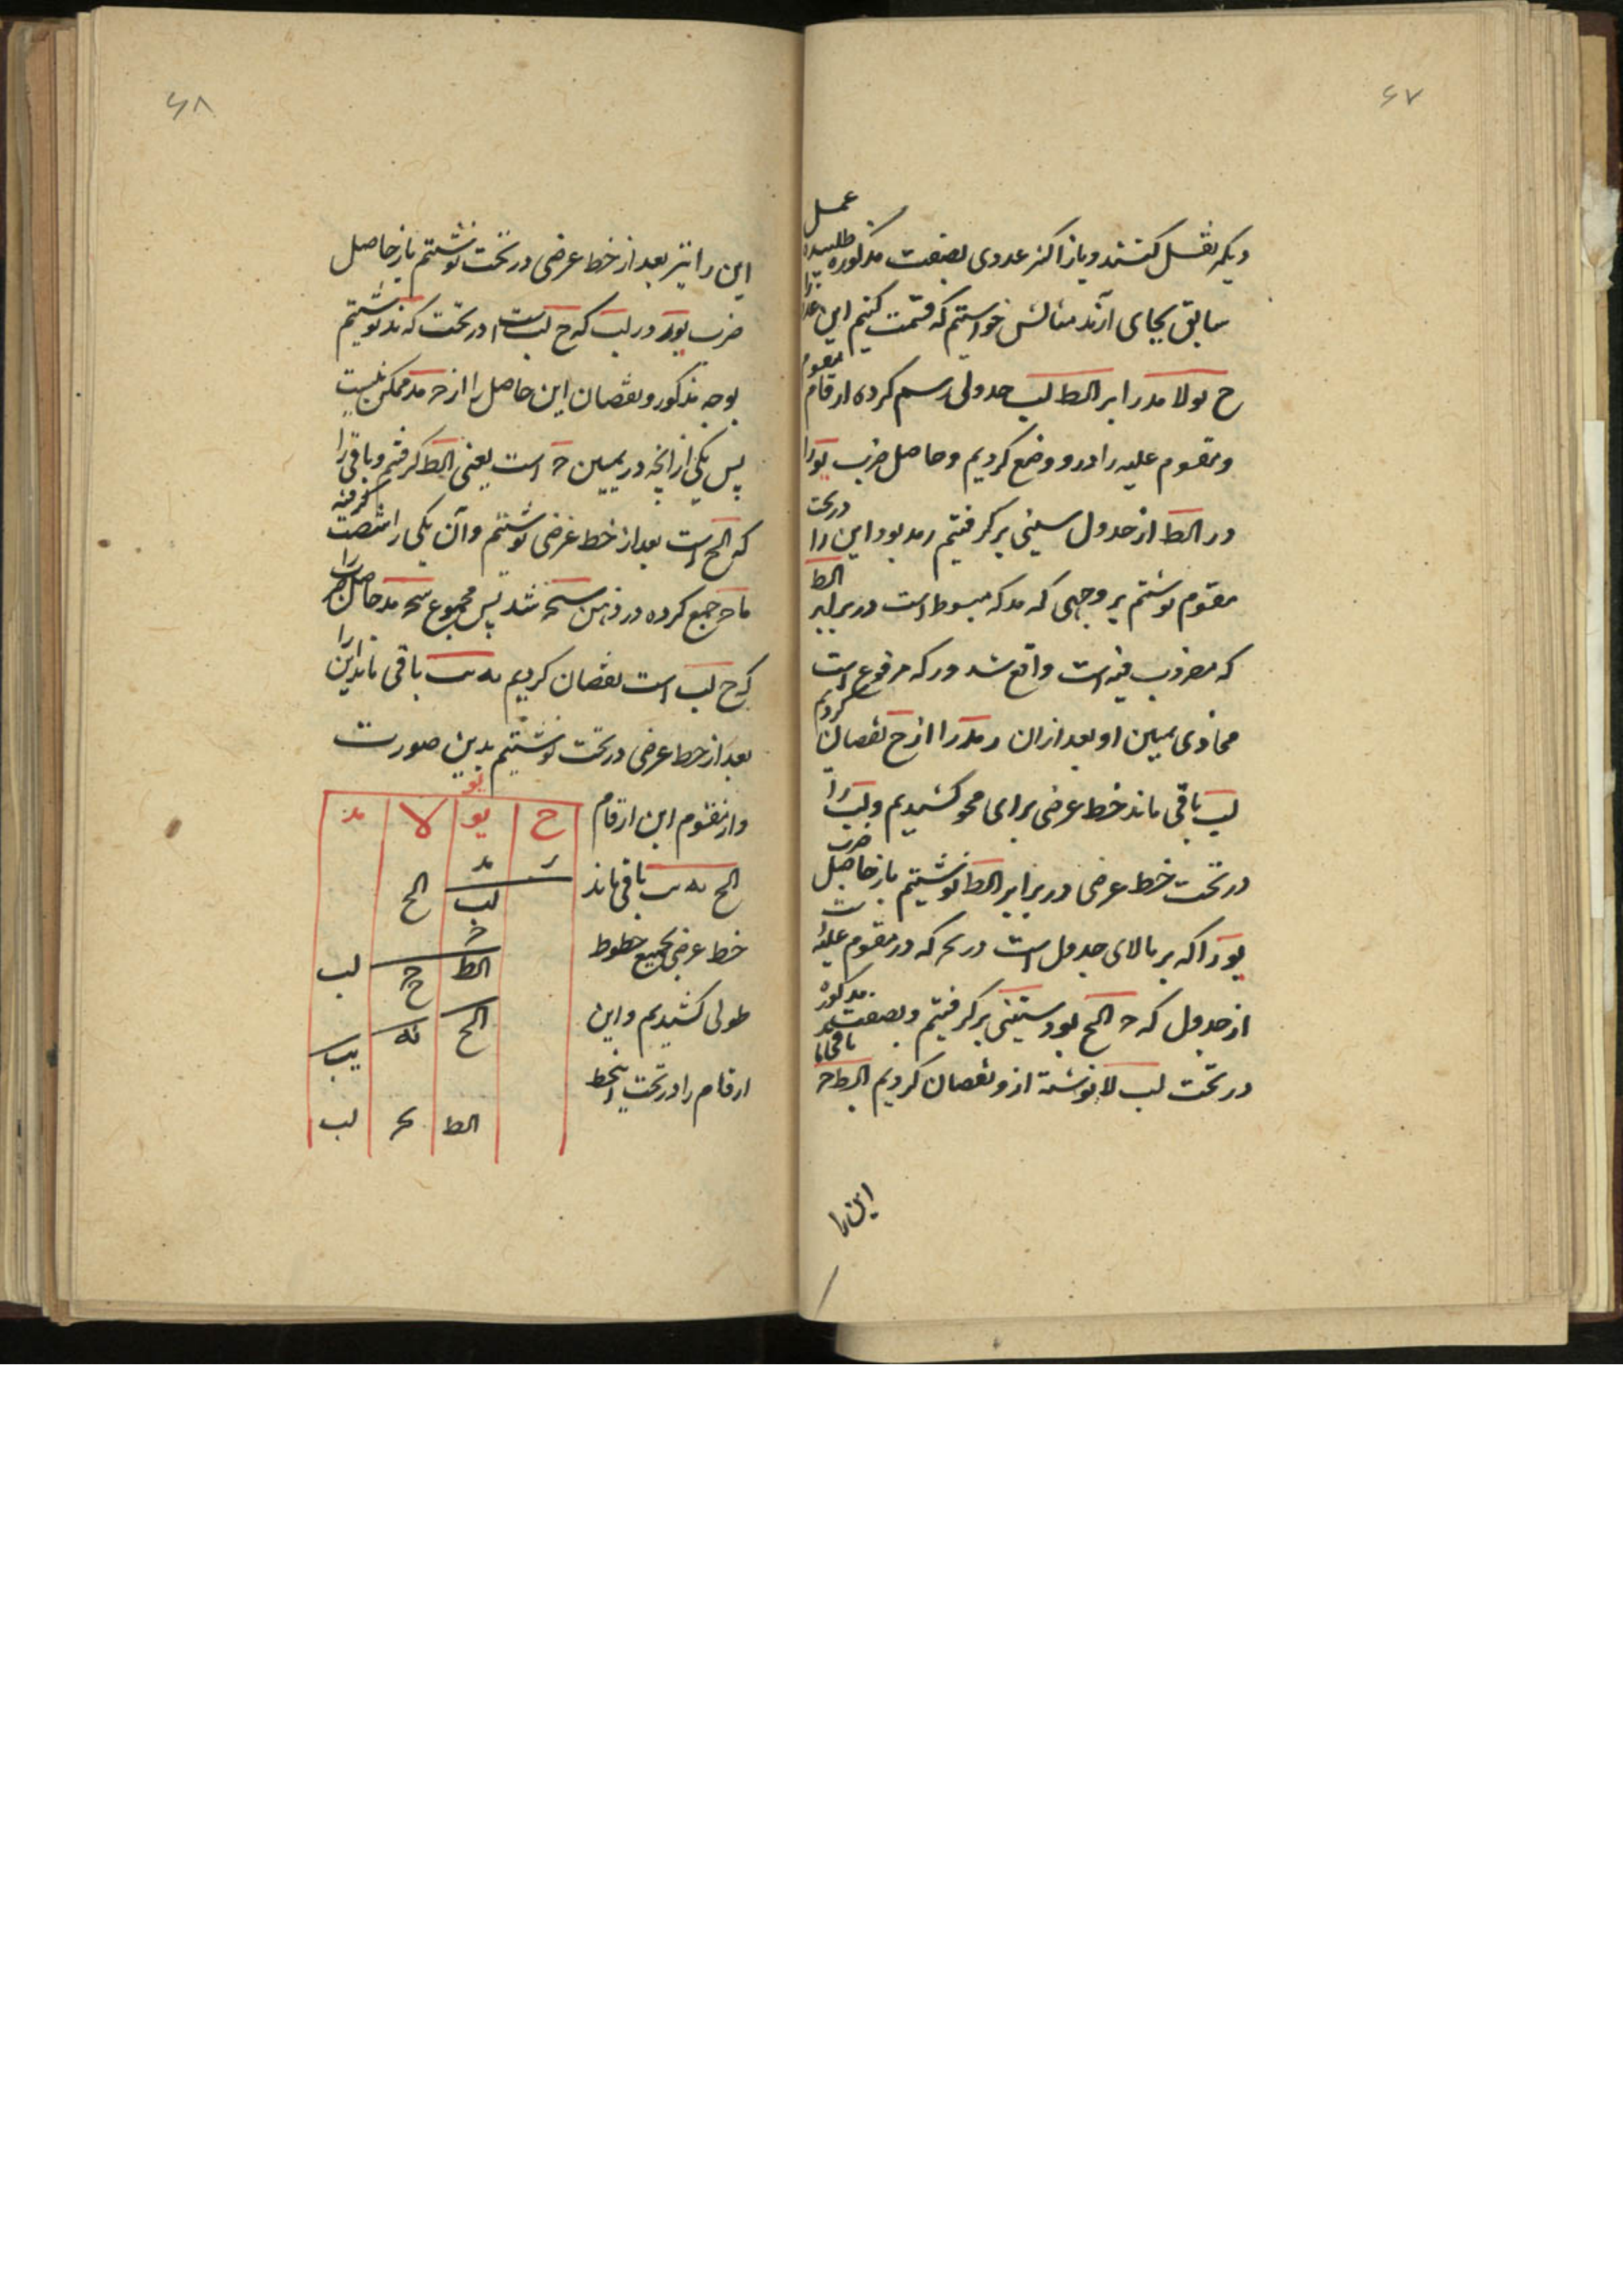 ۶۷
دیگر نقل کنند و باز اکثر عددی بصفت مذکوره طلبیده عمل
سابق بجای آرند مثالش خواستیم که قسمت کنیم این عدد را
ح یو لا مد را بر الط لب جدولی رسم کرده ارقام مقسوم
و مقسوم علیه را درو وضع کردیم و حاصل ضرب یو را
در الط از جدول ستینی برگرفتیم ر مد بود این را در تحت
مقسوم نوشتیم بر وجهی که مد که مبسوط است در برابر الط
که مضروب فیه است واقع شد و ر که مرفوع است
محاذی یمین او بعد ازان ر مد را از ح نقصان کردیم
لب باقی ماند خط عرضی برای محو کشیدیم و لب را
در تحت خط عرضی در برابر الط نوشتیم باز حاصل ضرب
یو را که بر بالای جدول است در که در مقسوم علیه است
از جدول که ح الح بود ستینی برگرفتیم و بصفت مذکوره
در تحت لب لا نوشته ازو نقصان کردیم الط ح باقی ماند
این را
۶۸
این را نیز بعد از خط عرضی در تحت نوشتیم باز حاصل
ضرب یو را در لب که ح لب است در تحت که مد نوشتیم
بوجه مذکور و نقصان این حاصل را از ح مد ممکن نیست
پس یکی از آنچه در یمین ح است یعنی الط گرفتیم و باقی را
که الح است بعد از خط عرضی نوشتیم و آن یکی را شصت گرفته
با ح جمع کرده در ذهن سح شد پس مجموع سح مد حاصل ضرب را
که ح لب است نقصان کردیم نه یب باقی ماند این را
بعد از خط عرضی در تحت نوشتیم بدین صورت
و از مقسوم این ارقام
الح نه یب باقی ماند
خط عرضی بجمیع خطوط
طولی کشیدیم و این
ارقام را در تحت آن خط
یو
ح یو لا مد
ر مد
لب الح
ح
الط ح لب
ح
الح نه یب
الط لب